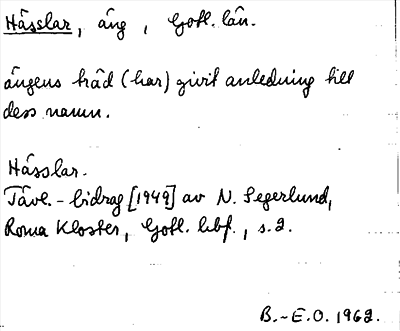 Hässlar, äng, Gotl. län.
ängens träd (har) givit anledning till
dess namn.
Hässlar.
Tävl.-bidrag [1949] av N. Segerlund,
Roma Kloster, Gotl. hbf., s. 2.
B.-E.O. 1962.